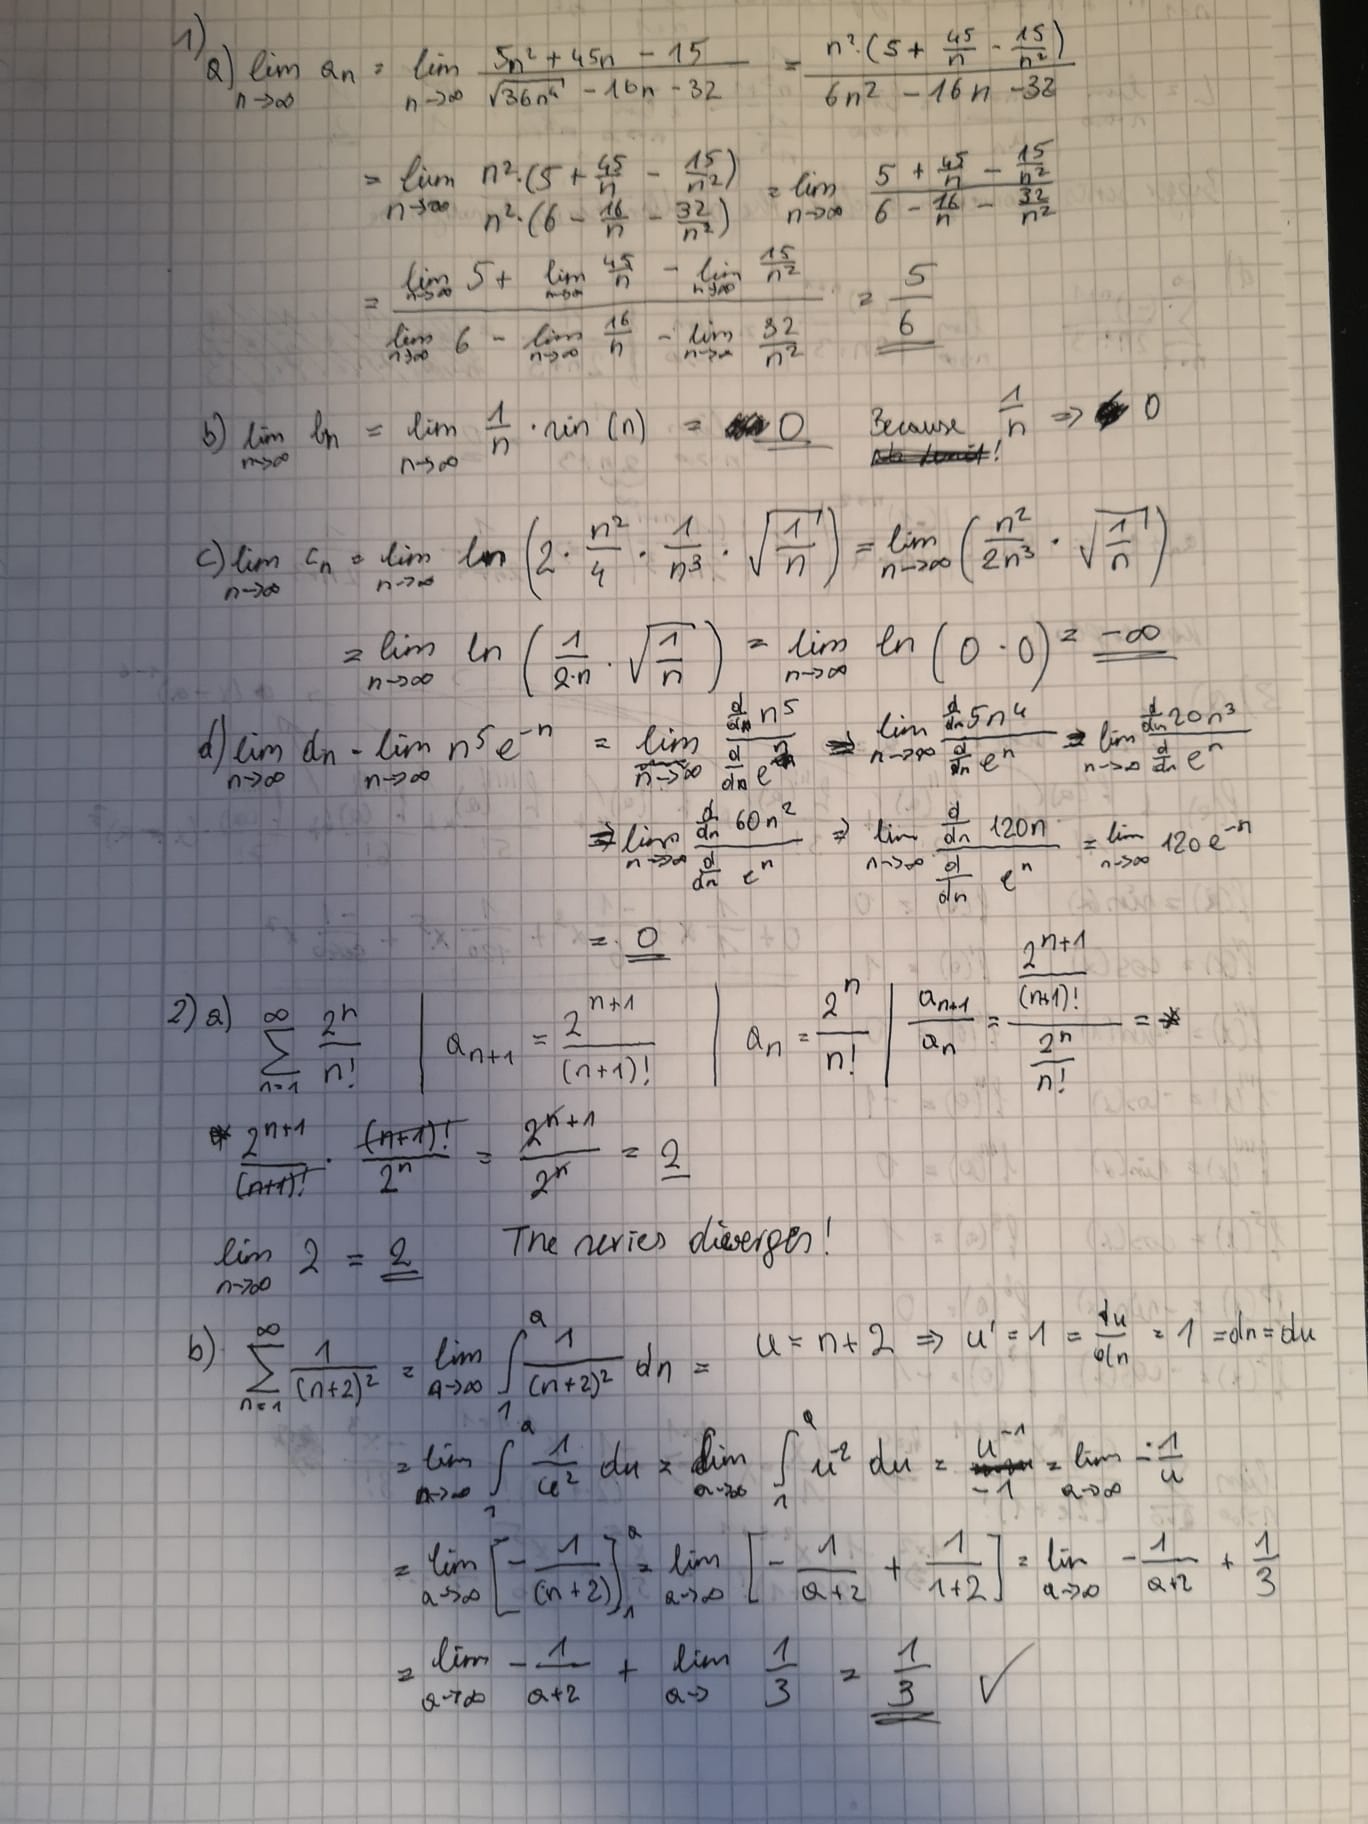 1)
a) lim n→∞ an = lim n→∞ (5n² + 45n − 15)/(√36n⁴ − 16n − 32) = (n²·(5 + 45/n − 15/n²))/(6n² − 16n − 32)
= lim n→∞ (n²·(5 + 45/n − 15/n²))/(n²·(6 − 16/n − 32/n²)) = lim n→∞ (5 + 45/n − 15/n²)/(6 − 16/n − 32/n²)
= (lim n→∞ 5 + lim n→∞ 45/n − lim n→∞ 15/n²)/(lim n→∞ 6 − lim n→∞ 16/n − lim n→∞ 32/n²) = 5/6
b) lim n→∞ bn = lim n→∞ 1/n · sin(n) = 0 Because 1/n ⇒ 0
!
c) lim n→∞ cn = lim n→∞ ln(2 · n²/4 · 1/n³ · √(1/n)) = lim n→∞ (n²/2n³ · √(1/n))
= lim n→∞ ln(1/2·n · √(1/n)) = lim n→∞ ln(0 · 0) = −∞
d) lim n→∞ dn − lim n→∞ n⁵e⁻ⁿ = lim n→∞ (d/dn n⁵)/(d/dn eⁿ) ⇒ lim n→∞ (d/dn 5n⁴)/(d/dn eⁿ) ⇒ lim n→∞ (d/dn 20n³)/(d/dn eⁿ)
⇒ lim n→∞ (d/dn 60n²)/(d/dn eⁿ) ⇒ lim n→∞ (d/dn 120n)/(d/dn eⁿ) = lim n→∞ 120e⁻ⁿ
= 0
2) a) ∞ Σ n=1 2ⁿ/n! | aₙ₊₁ = 2ⁿ⁺¹/(n+1)! | aₙ = 2ⁿ/n! | aₙ₊₁/aₙ = (2ⁿ⁺¹/(n+1)!)/(2ⁿ/n!) = *
* 2ⁿ⁺¹/(n+1)! · (n+1)!/2ⁿ = 2ⁿ⁺¹/2ⁿ = 2
lim n→∞ 2 = 2 The series diverges!
b) ∞ Σ n=1 1/(n+2)² = lim a→∞ ∫₁ᵃ 1/(n+2)² dn = u = n+2 ⇒ u' = 1 = du/dn = 1 = dn = du
= lim a→∞ ∫₁ᵃ 1/u² du = lim a→∞ ∫₁ᵃ u⁻² du = u⁻¹/−1 = lim a→∞ −1/u
= lim a→∞ [−1/(n+2)]₁ᵃ = lim a→∞ [−1/a+2 + 1/1+2] = lim a→∞ −1/a+2 + 1/3
= lim a→∞ −1/a+2 + lim a→ 1/3 = 1/3 ✓